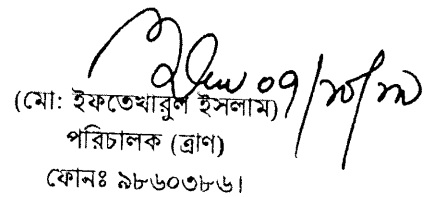 (মো: ইফতেখারুল ইসলাম)
পরিচালক (ত্রাণ)
ফোনঃ ৯৮৬০৩৮৬।